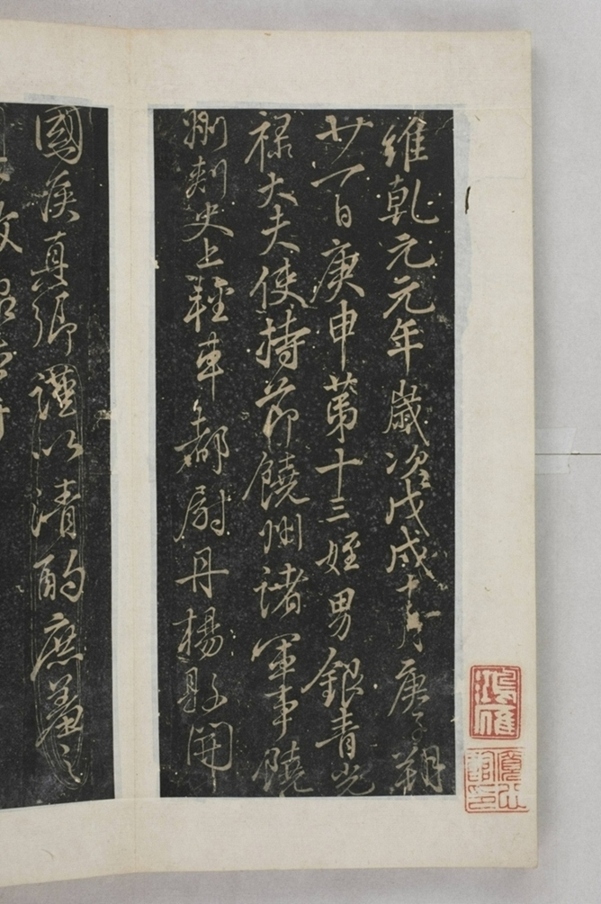 維乾元元年歲次戊戌十月庚子朔
廿一日庚申第十三姪男銀青光
祿大夫使持節饒州諸軍事饒
州刺史上輕車都尉丹楊縣開
國侯真卿謹以清酌庶羞之
鴻雁